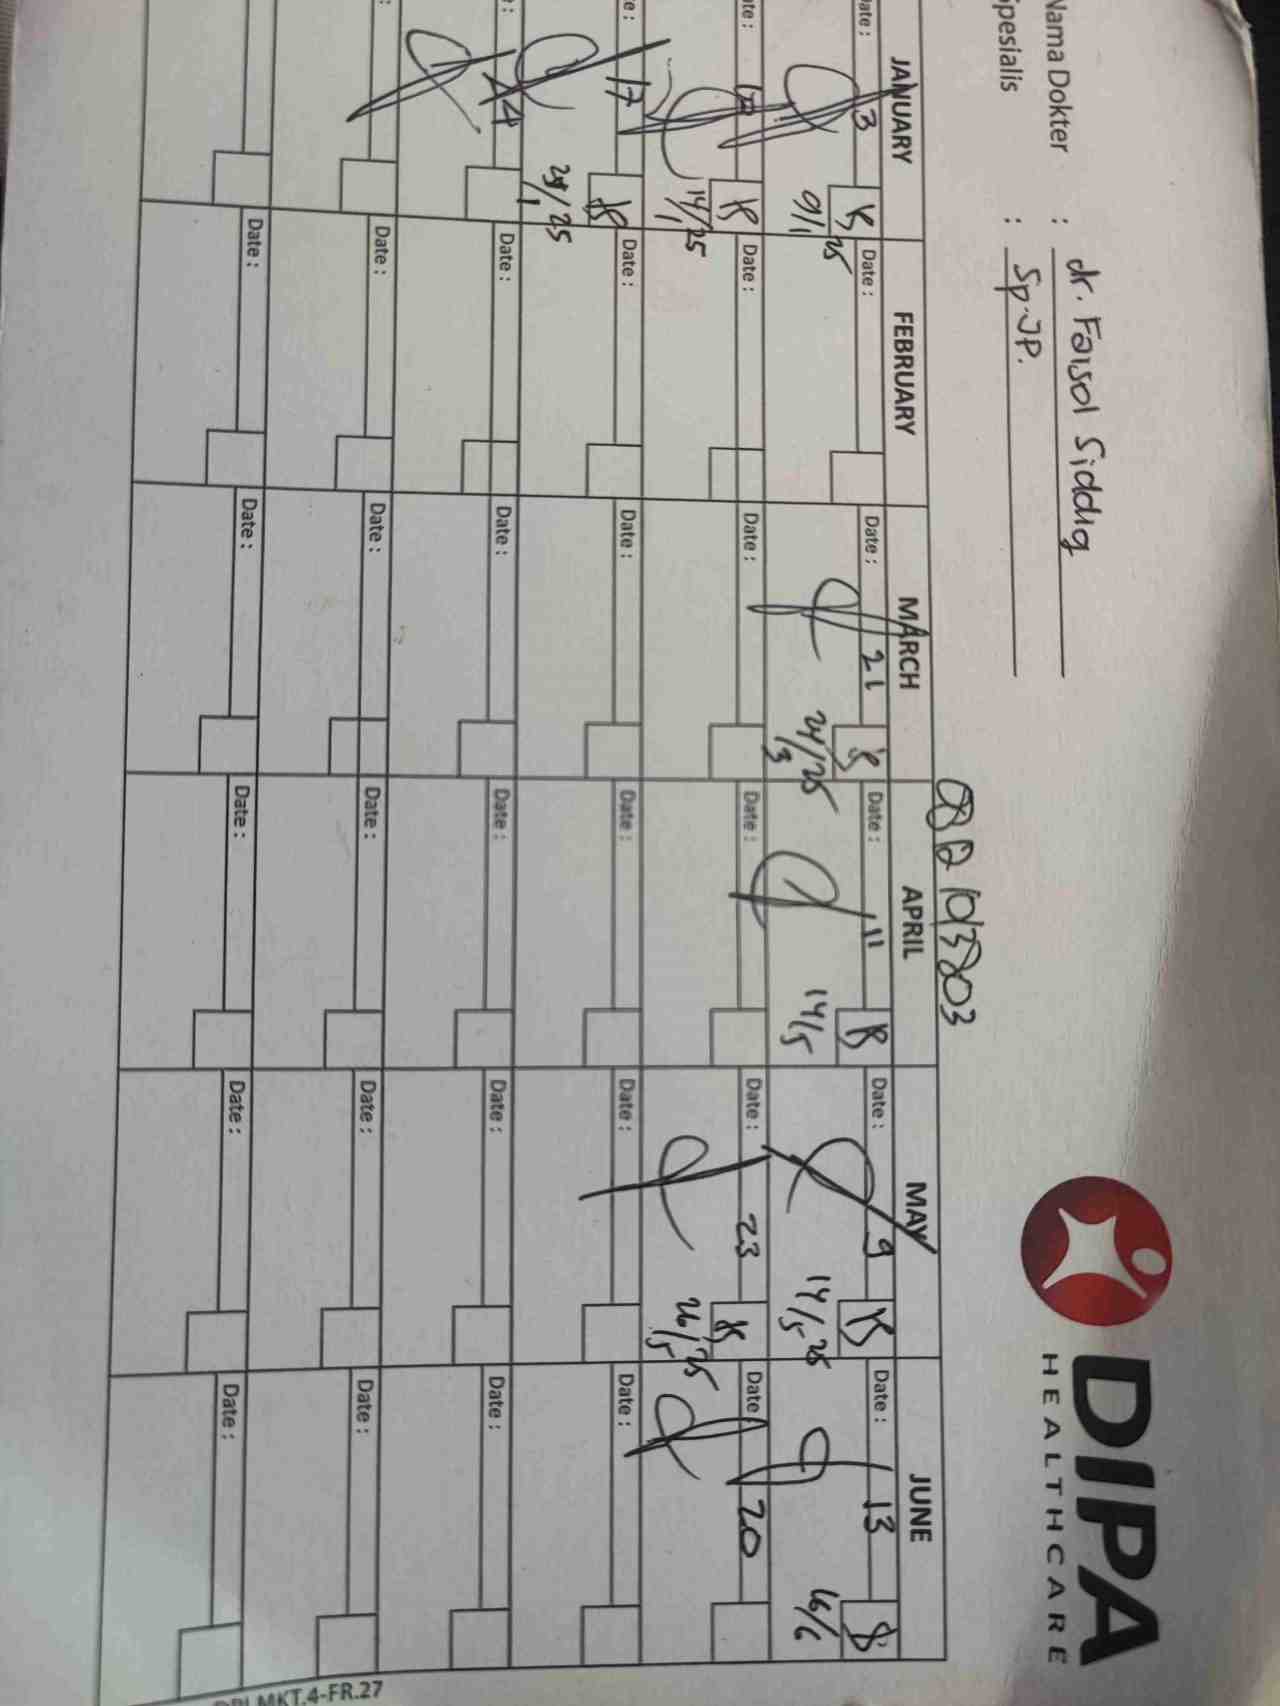 Nama Dokter : dr. Faisol Siddiq
Spesialis : Sp.JP.
DIPA
HEALTHCARE
JANUARY FEBRUARY MARCH APRIL MAY JUNE
Date : 3 Date : Date : 21 Date : 11 Date : 9 Date : 13
9/1 25 24/3 25 14/5 14/5 25 16/6
Date : Date : Date : Date : Date : 23 Date : 20
14/1 25 26/5 25
Date : 17 Date : Date : Date : Date : Date :
24 Date : Date : Date : Date : Date :
Date : Date : Date : Date : Date :
Date : Date : Date : Date : Date :
MKT.4-FR.27